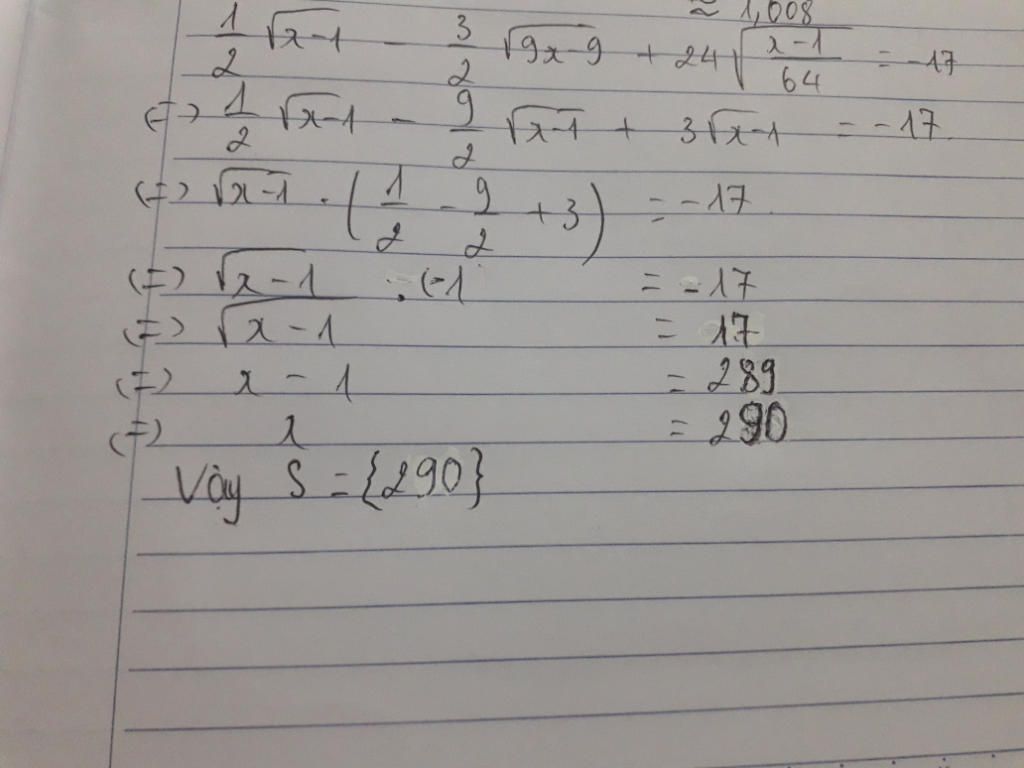 ≈ 1,008
1/2 √(x-1) - 3/2 √(9x-9) + 24√((x-1)/64) = -17
(=) 1/2 √(x-1) - 9/2 √(x-1) + 3√(x-1) = -17
(=) √(x-1) . (1/2 - 9/2 + 3) = -17
(=) √(x-1) . (-1 = -17
(=) √(x-1) = 17
(=) x - 1 = 289
(=) x = 290
Vậy S = {290}